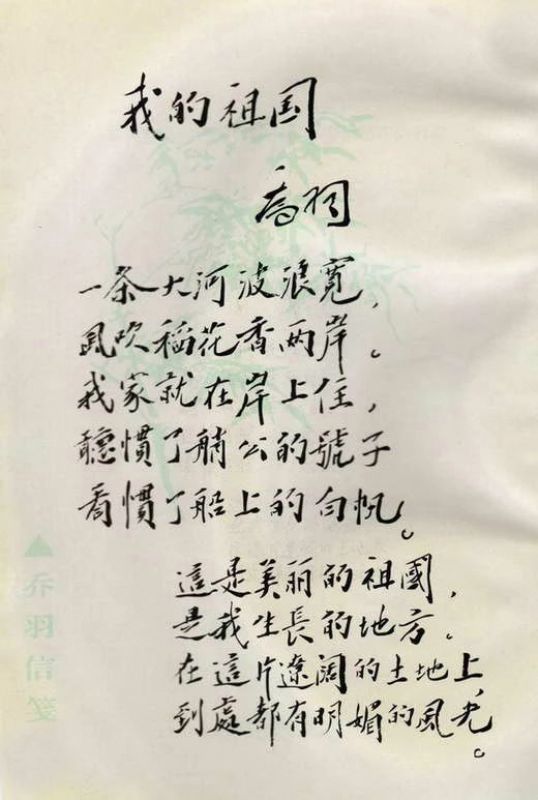 我的祖国
喬羽
一条大河波浪寬,
風吹稻花香两岸。
我家就在岸上住,
聽慣了艄公的號子
看慣了船上的白帆。
這是美丽的祖國,
是我生長的地方.
在這片遼阔的土地上,
到處都有明媚的風光。
乔羽信笺